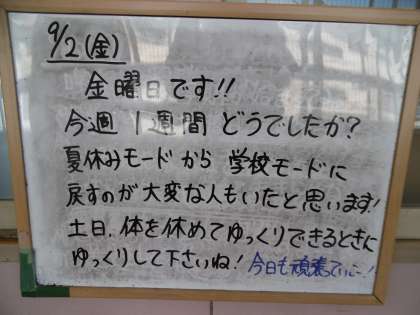 9/2(金)
金曜日です!!
今週 1週間 どうでしたか?
夏休みモードから 学校モードに
戻すのが大変な人もいたと思います!
土日、体を休めてゆっくりできるときに
ゆっくりして下さいね! 今日も頑張っていこー!